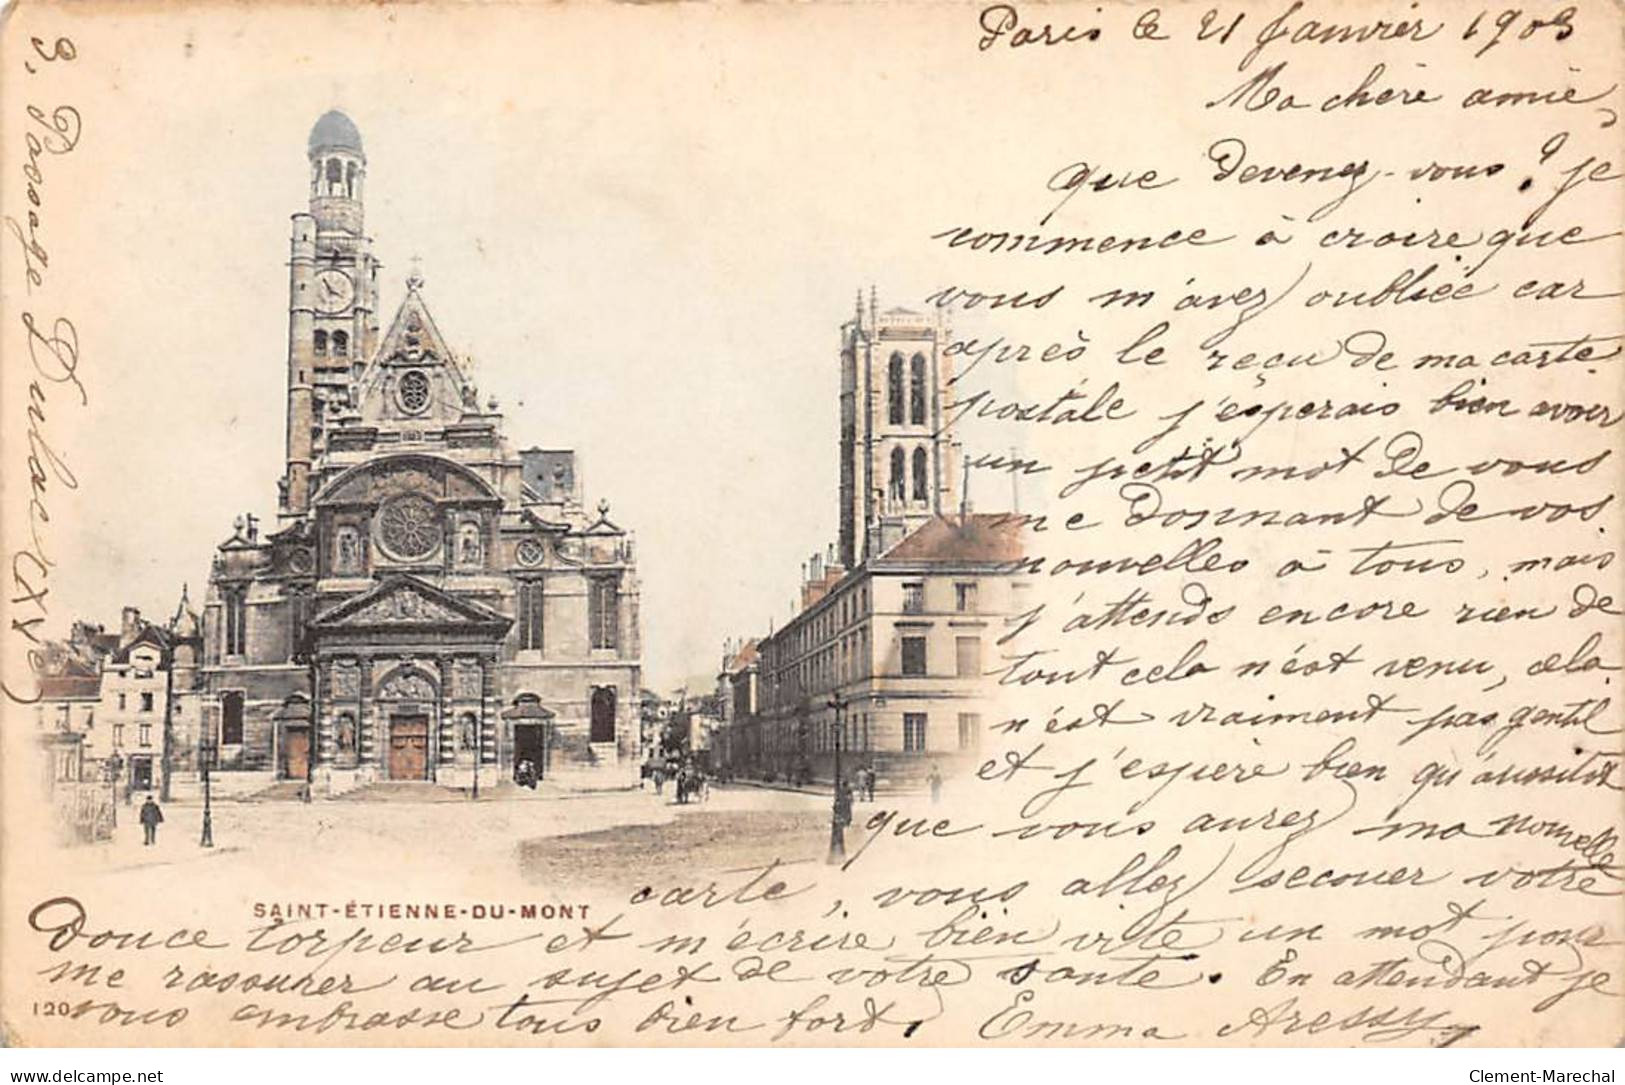 Paris le 21 Janvier 1903
Ma chère amie,
que devenez-vous? je
commence à croire que
vous m'avez oubliée car
après le reçu de ma carte
postale j'espérais bien avoir
un petit mot de vous
me donnant de vos
nouvelles à tous, mais
j'attends encore rien de
tout cela n'est venu, cela
n'est vraiment pas gentil
et j'espère bien qu'aussitôt
que vous aurez ma nouvelle
carte, vous allez secouer votre
douce torpeur et m'écrire bien vite un mot pour
me rassurer au sujet de votre santé. En attendant je
vous embrasse tous bien fort. Emma Aressy
9, Passage Dulac (XVe)
SAINT-ÉTIENNE-DU-MONT
120
Clement-Marechal
https://www.delcampe.net